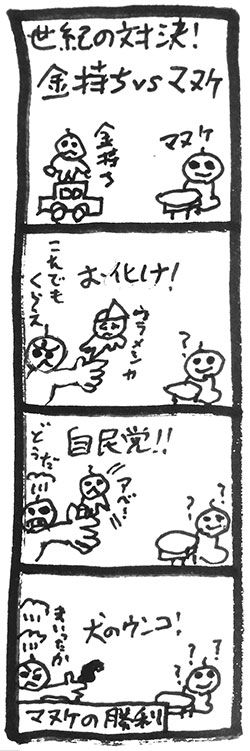 世紀の対決!
金持ちvsマヌケ
マヌケ
金持ち
お化け!
ウラメシヤ
これでも
くらえ
?
自民党!!
アベ!!
どうだ
?
?
犬のウンコ!
まいったか
?
?
?
マヌケの勝利